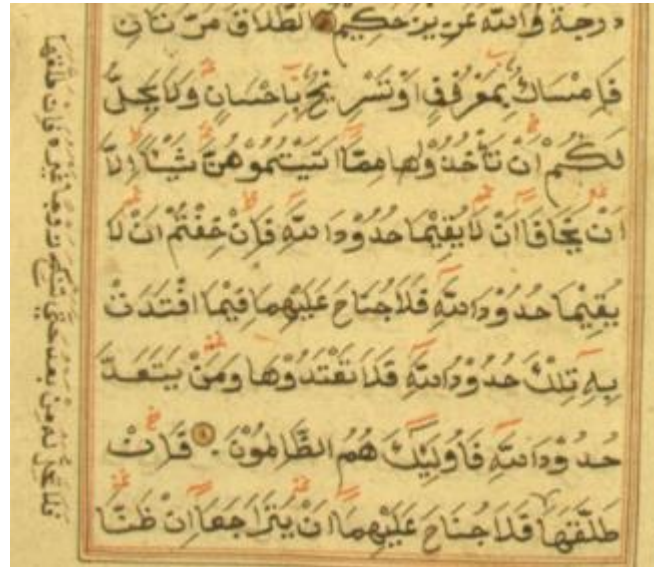 دَرَجَةٌ وَاللّٰهُ عَزِيْزٌ حَكِيْمٌ الطَّلَاقُ مَرَّتَانِ
فَاِمْسَاكٌ بِمَعْرُوْفٍ اَوْ تَسْرِيْحٌ بِاِحْسَانٍ وَلَا يَحِلُّ
لَكُمْ اَنْ تَأْخُذُوْا مِمَّا اٰتَيْتُمُوْهُنَّ شَيْئًا اِلَّا
اَنْ يَخَافَا اَنْ لَا يُقِيْمَا حُدُوْدَ اللّٰهِ فَاِنْ خِفْتُمْ اَنْ لَا
يُقِيْمَا حُدُوْدَ اللّٰهِ فَلَا جُنَاحَ عَلَيْهِمَا فِيْمَا افْتَدَتْ
بِهٖ تِلْكَ حُدُوْدُ اللّٰهِ فَلَا تَعْتَدُوْهَا وَمَنْ يَتَعَدَّ
حُدُوْدَ اللّٰهِ فَاُولٰئِكَ هُمُ الظَّالِمُوْنَ فَاِنْ
طَلَّقَهَا فَلَا جُنَاحَ عَلَيْهِمَا اَنْ يَتَرَاجَعَا اِنْ ظَنَّا
فلا تحل له من بعد حتى تنكح زوجا غيره فان طلقها